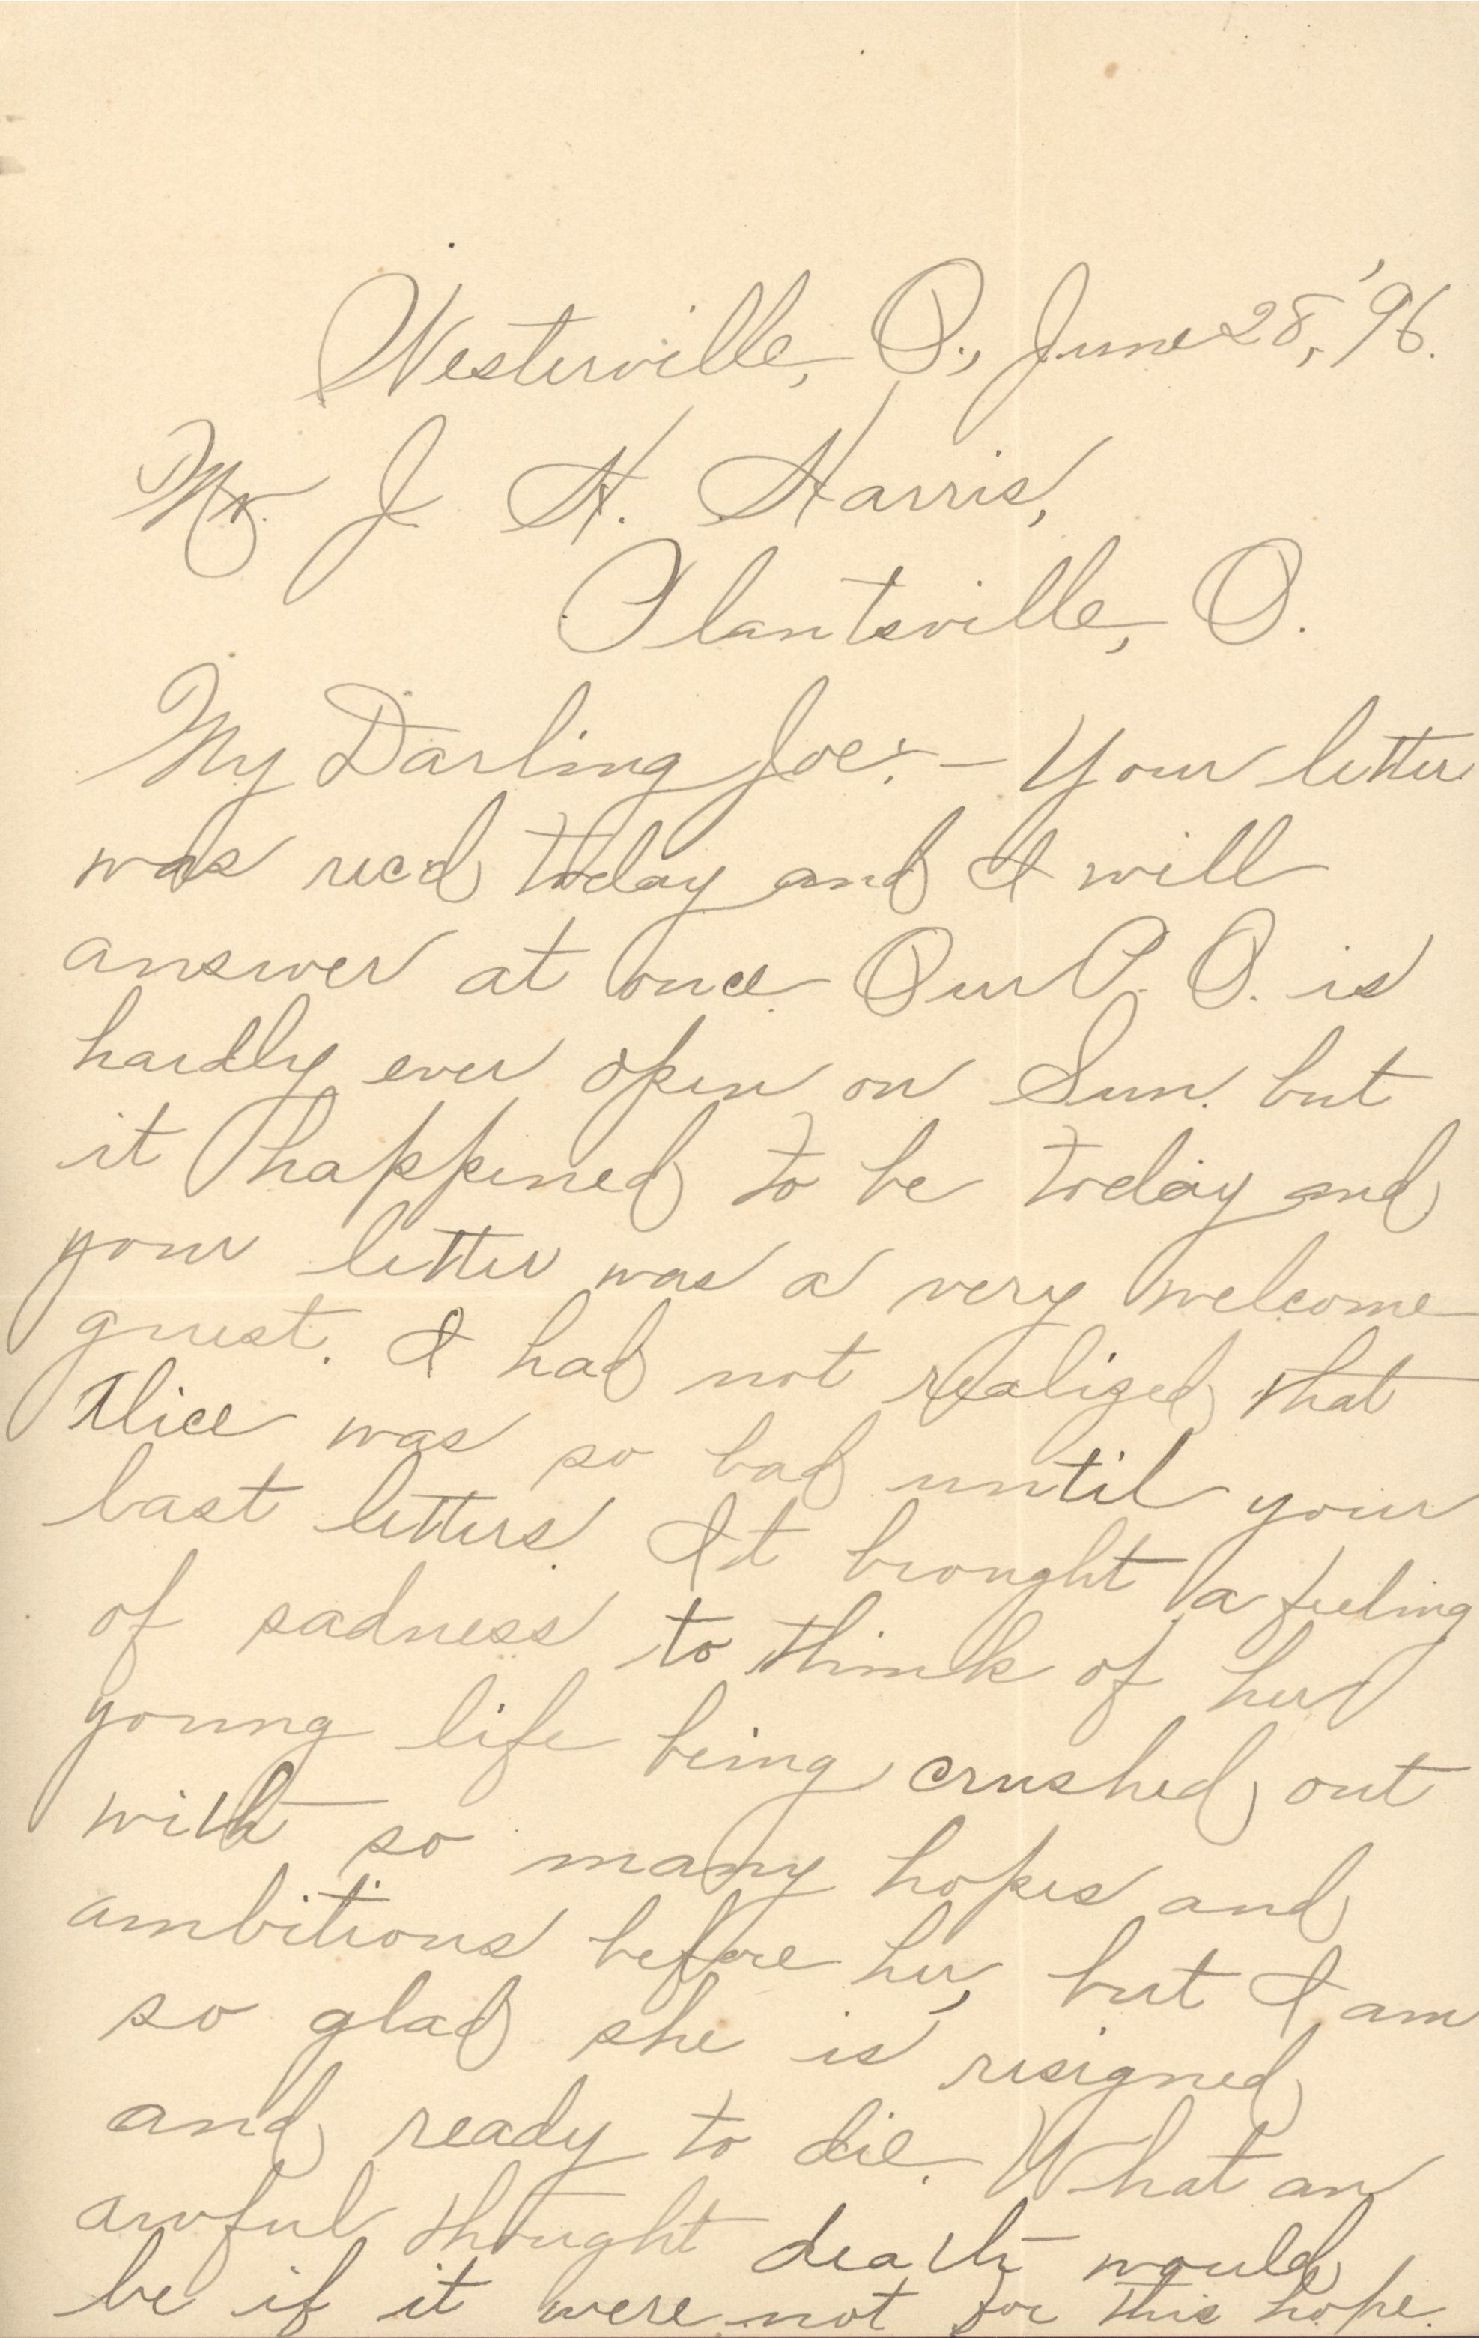 Westerville, O., June 28, '96.
Mr. J. H. Harris,
Plantsville, O.
My Darling Joe:- Your letter
was rec'd today and I will
answer at once. Our P. O. is
hardly ever open on Sun. but
it happened to be today and
your letter was a very welcome
guest. I had not realized that
Alice was so bad until your
last letters. It brought a feeling
of sadness to think of her
young life being crushed out
with so many hopes and
ambitions before her, but I am
so glad she is resigned
and ready to die. What an
awful thought death would
be if it were not for this hope.